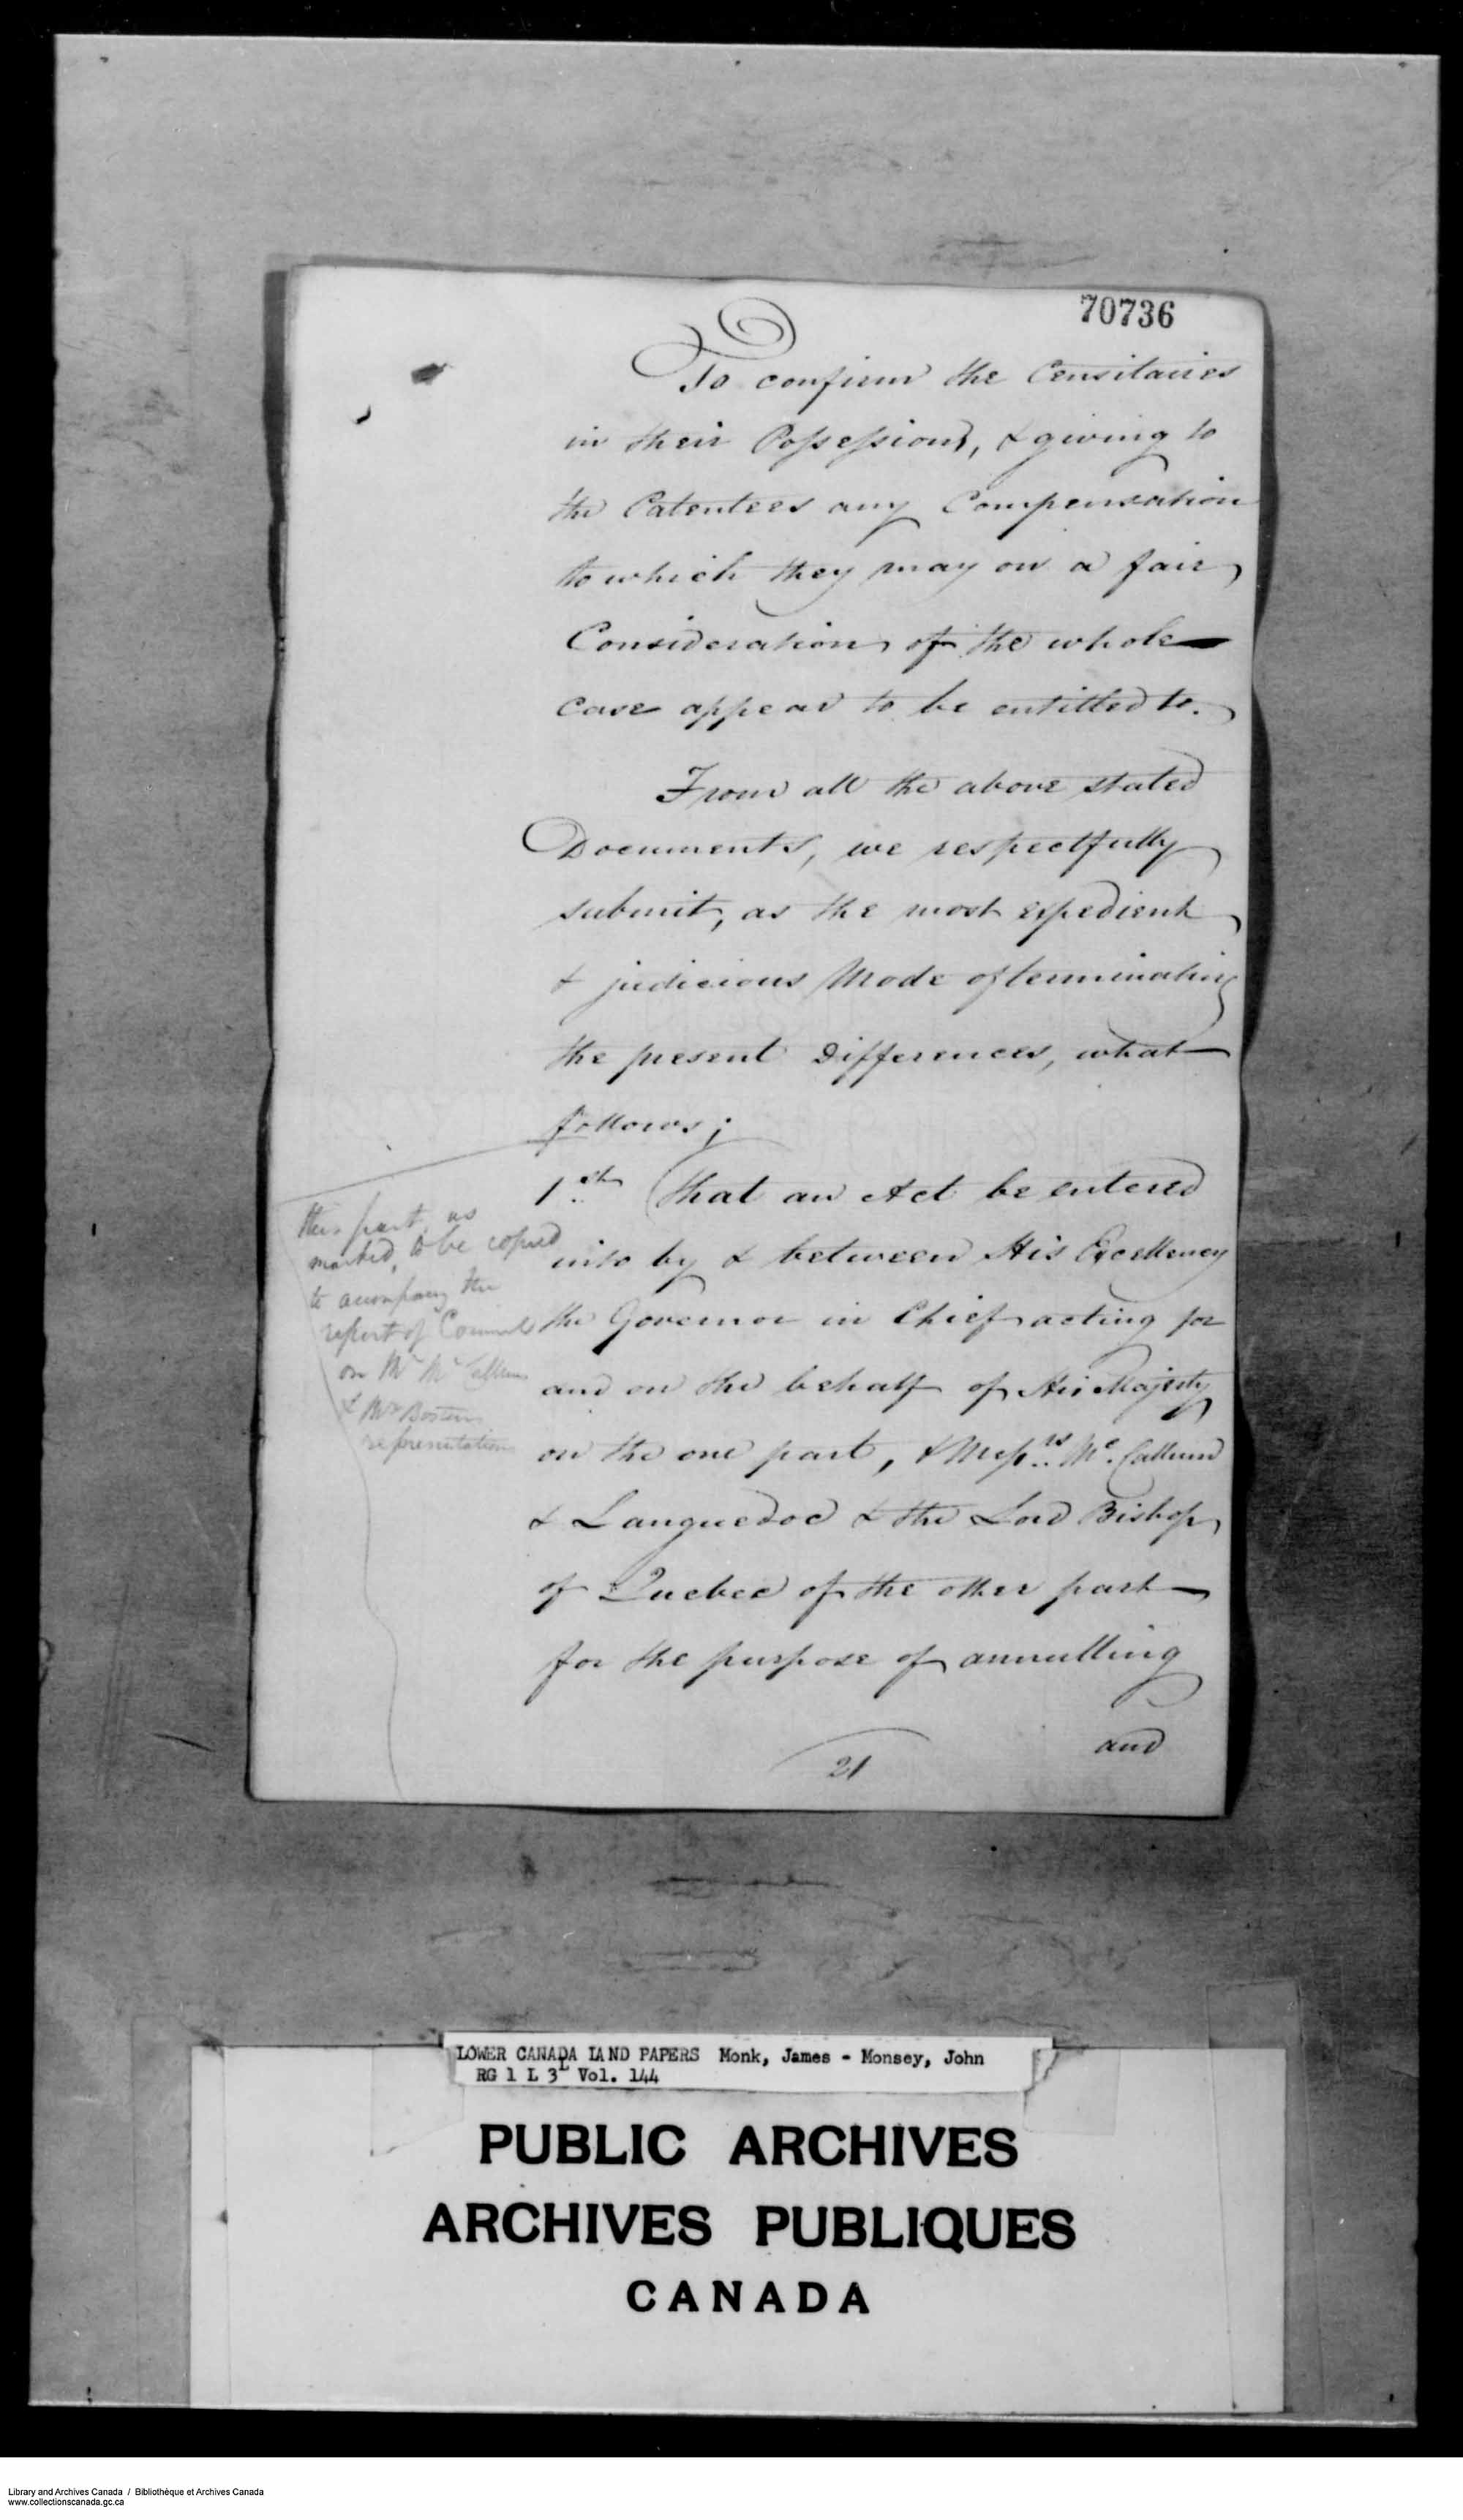 70736
To confirm the Censitaires
in their Possessions, & giving to
the Patentees any Compensation
to which they may on a fair
Consideration of the whole
case appear to be entitled to.
From all the above stated
Documents, we respectfully
submit, as the most expedient
& judicious Mode of terminating
the present Differences, what
follows;
1st That an Act be entered
into by & between His Excellency
the Governor in Chief acting for
and on the behalf of His Majesty
on the one part, & Messrs. Mc. Callum
& Languedoc & the Lord Bishop
of Quebec of the other part
for the purpose of annulling
and
21
this part, as
marked, to be copied
to accompany the
report of Council
on Mr Mc Callum
& Mr Bostens
representations
LOWER CANADA LAND PAPERS Monk, James - Monsey, John
RG 1 L 3L Vol. 144
PUBLIC ARCHIVES
ARCHIVES PUBLIQUES
CANADA
Library and Archives Canada / Bibliothèque et Archives Canada
www.collectionscanada.gc.ca